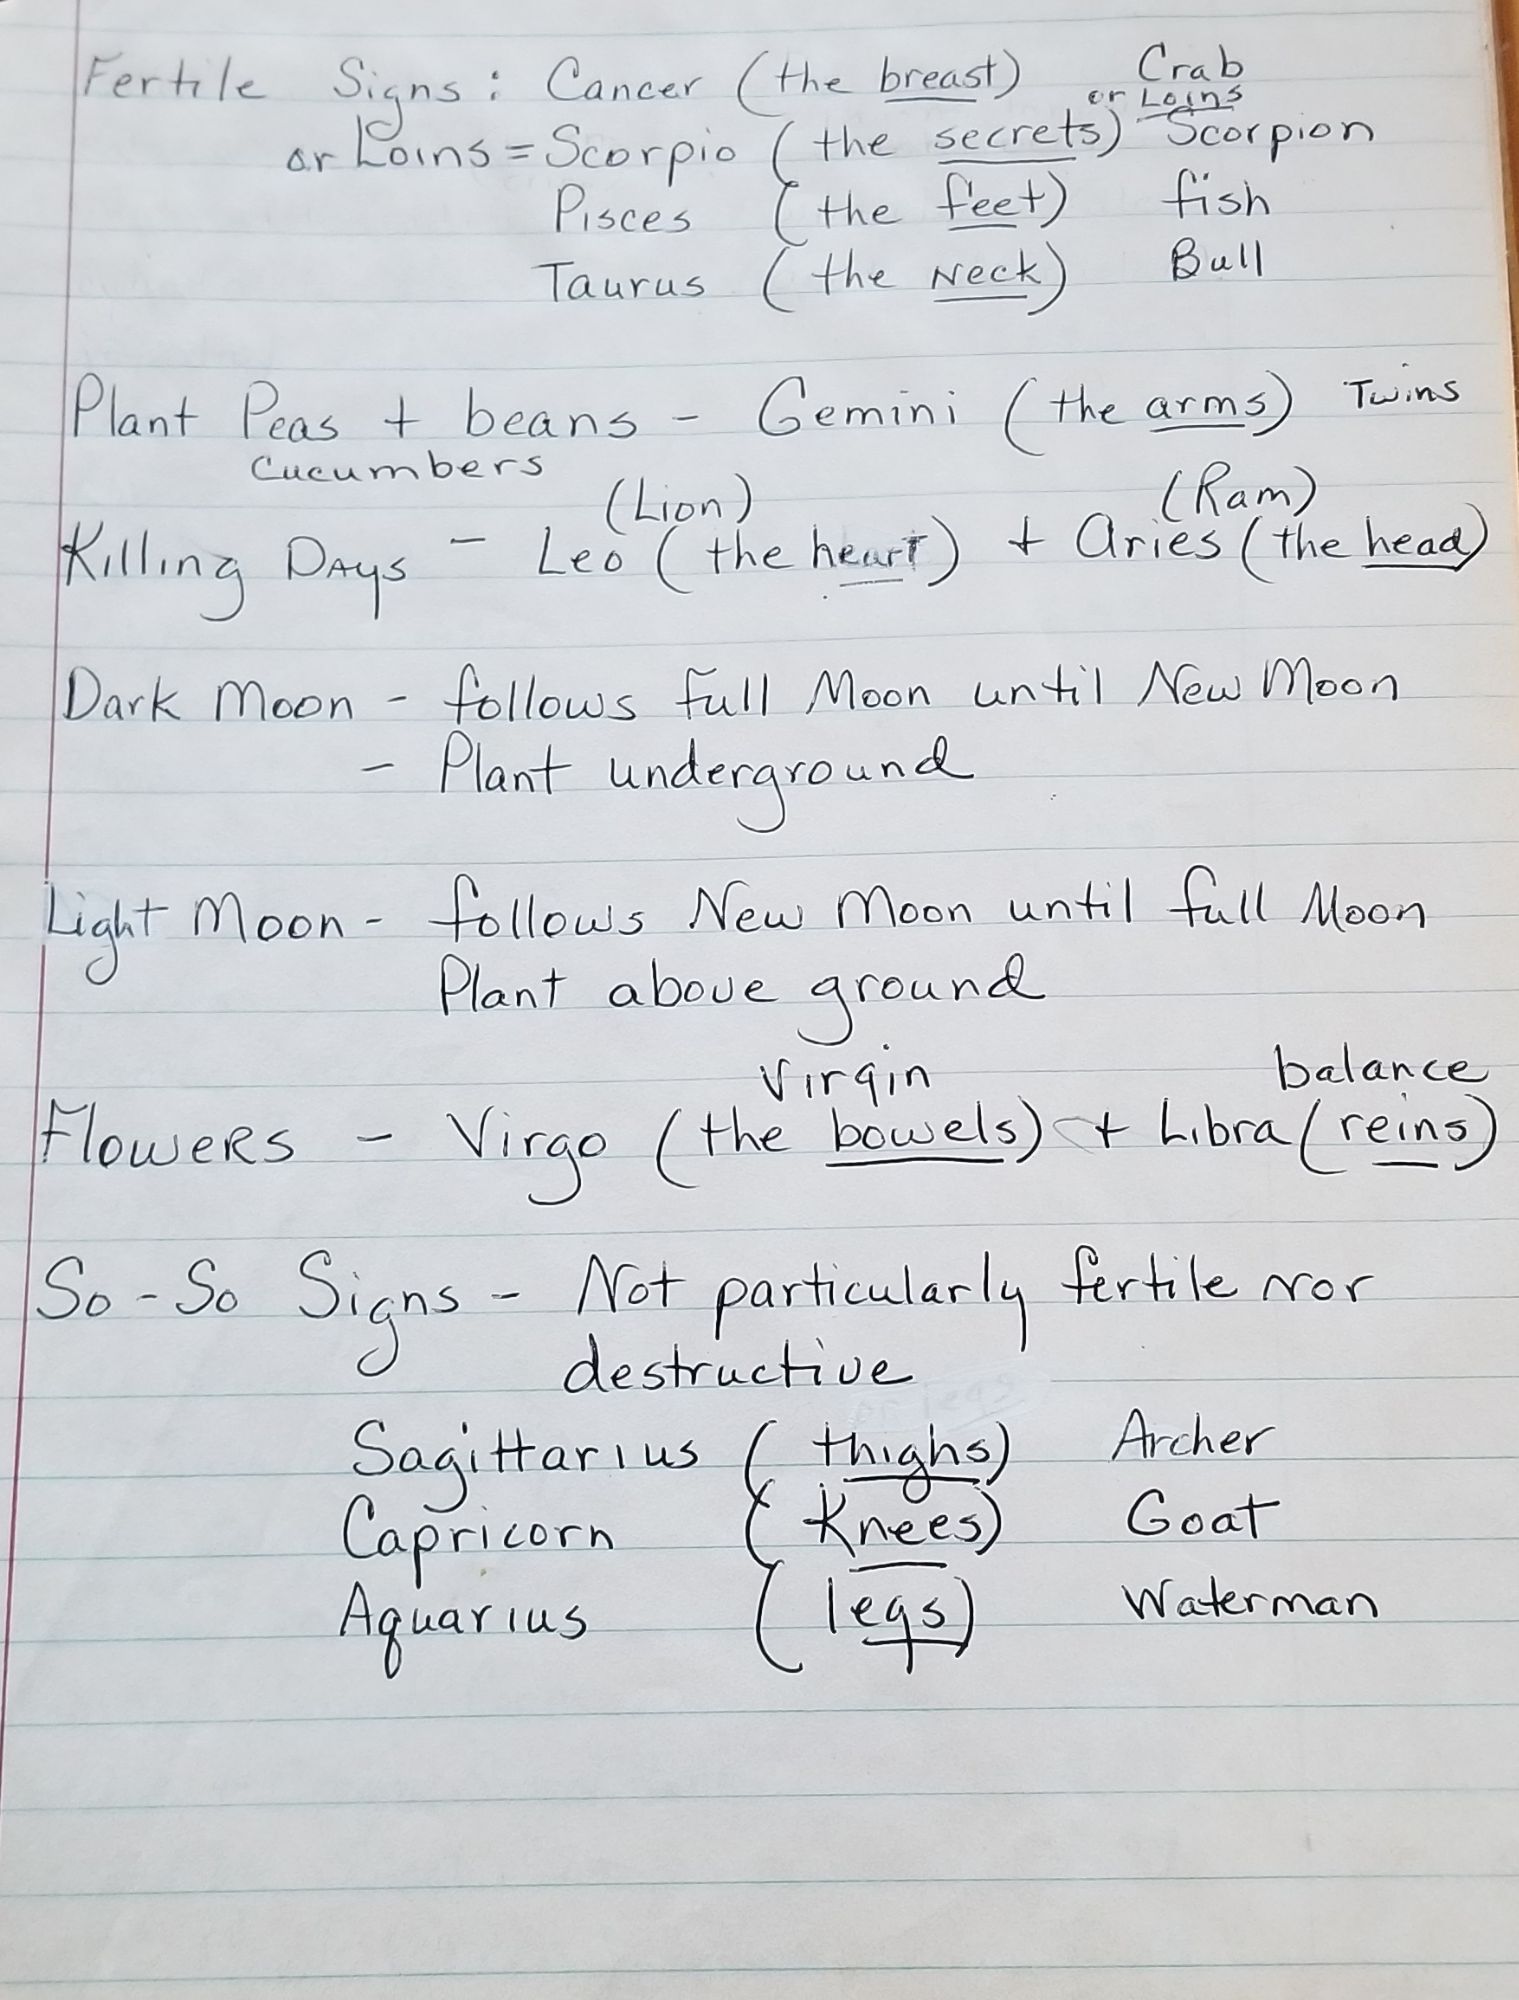 Fertile Signs: Cancer (the breast) Crab
or Loins = Scorpio (the secrets) or Loins Scorpion
Pisces (the feet) fish
Taurus (the Neck) Bull
Plant Peas + beans - Gemini (the arms) Twins
Cucumbers
(Lion) (Ram)
Killing Days - Leo (the heart) + Aries (the head)
Dark Moon - follows Full Moon until New Moon
- Plant underground
Light Moon - follows New Moon until full Moon
Plant above ground
Virgin balance
Flowers - Virgo (the bowels) + Libra (reins)
So-So Signs - Not particularly fertile Nor
destructive
Sagittarius (thighs) Archer
Capricorn (Knees) Goat
Aquarius (legs) Waterman